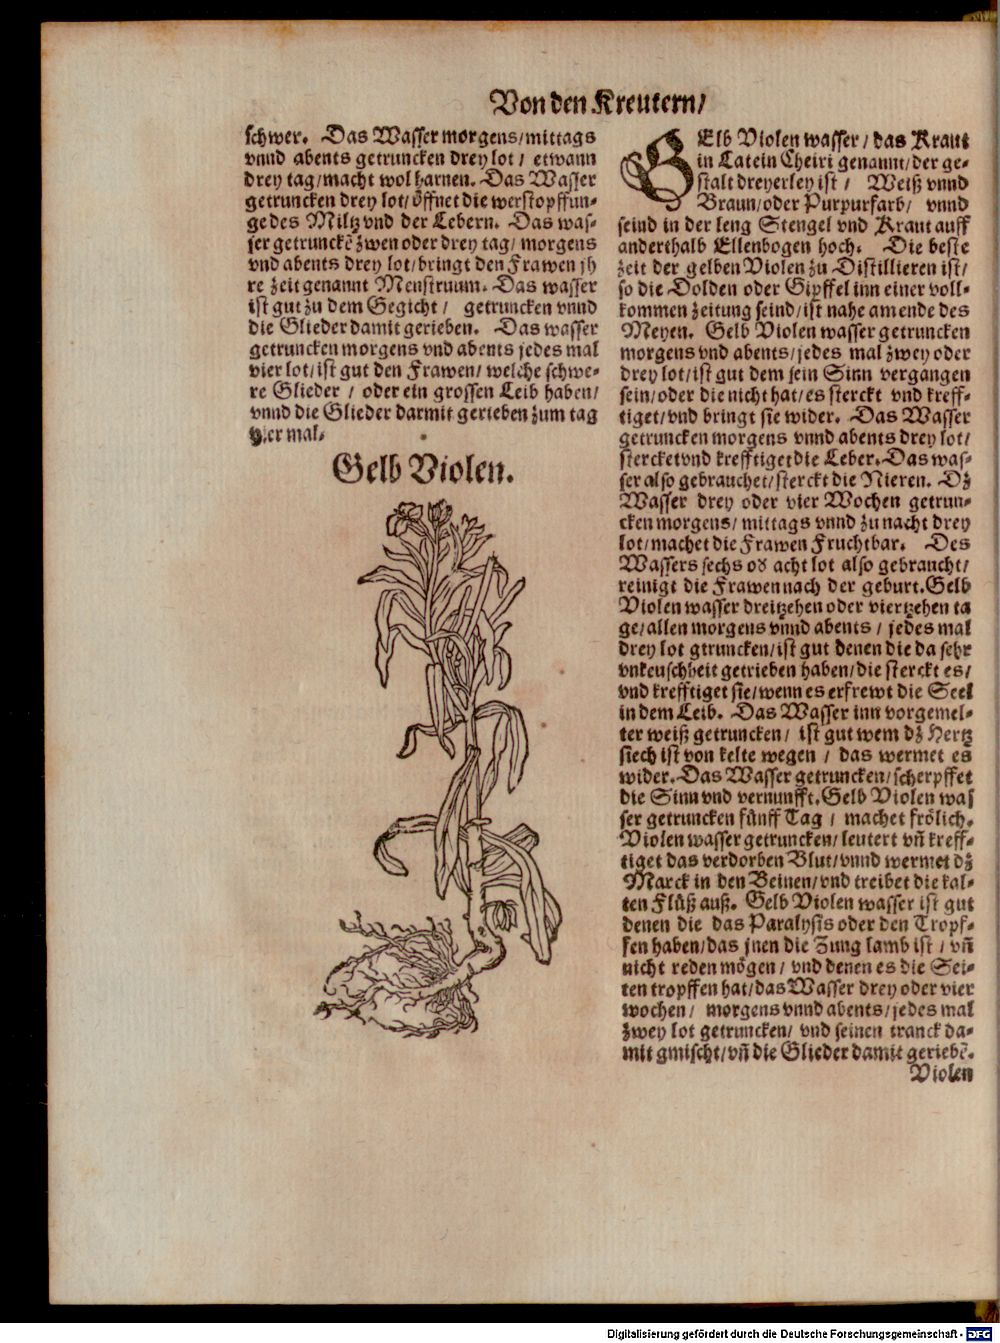 Von den Kreutern/
schwer. Das Wasser morgens/mittags
vnnd abents getruncken drey lot / etwann
drey tag/macht wol harnen. Das Wasser
getruncken drey lot/öffnet die werstopffun-
ge des Miltz vnd der Lebern. Das was-
ser getrunckē zwen oder drey tag/ morgens
vnd abents drey lot/bringt den Frawen jh
re zeit genannt Menstruum. Das wasser
ist gut zu dem Gegicht / getruncken vnnd
die Glieder damit gerieben. Das wasser
getruncken morgens vnd abents jedes mal
vier lot/ist gut den Frawen/ welche schwe-
re Glieder / oder ein grossen Leib haben/
vnnd die Glieder darmit gerieben zum tag
vier mal.
Gelb Violen.
GElb Violen wasser / das Kraut
in Latein Cheiri genannt/der ge-
stalt dreyerley ist / Weiß vnnd
Braun/oder Purpurfarb/ vnnd
seind in der leng Stengel vnd Kraut auff
anderthalb Ellenbogen hoch. Die beste
zeit der gelben Violen zu Distillieren ist/
so die Dolden oder Gipffel inn einer voll-
kommen zeitung seind/ist nahe am ende des
Meyen. Gelb Violen wasser getruncken
morgens vnd abents/jedes mal zwey oder
drey lot/ist gut dem sein Sinn vergangen
sein/oder die nicht hat/es sterckt vnd kreff-
tiget/vnd bringt sie wider. Das Wasser
getruncken morgens vnnd abents drey lot/
stercket vnd krefftiget die Leber. Das was-
ser also gebrauchet/sterckt die Nieren. Dz
Wasser drey oder vier Wochen getrun-
cken morgens/ mittags vnnd zu nacht drey
lot/machet die Frawen Fruchtbar. Des
Wassers sechs od acht lot also gebraucht/
reinigt die Frawen nach der geburt. Gelb
Violen wasser dreitzehen oder viertzehen ta
ge/allen morgens vnnd abents / jedes mal
drey lot gtruncken/ist gut denen die da sehr
vnkeuschheit getrieben haben/die sterckt es/
vnd krefftiget sie/wenn es erfrewt die Seel
in dem Leib. Das Wasser inn vorgemel-
ter weiß getruncken/ ist gut wem dz Hertz
siech ist von kelte wegen / das wermet es
wider. Das Wasser getruncken/scherpffet
die Sinn vnd vernunfft. Gelb Violen was
ser getruncken fünff Tag / machet frölich.
Violen wasser getruncken/leutert vn̄ kreff-
tiget das verdorben Blut/vnnd wermet dz
Marck in den Beinen/vnd treibet die kal-
ten Flüß auß. Gelb Violen wasser ist gut
denen die das Paralysis oder den Tropf-
fen haben/das jnen die Zung lamb ist / vn̄
nicht reden mögen / vnd denen es die Sei-
ten tropffen hat/das Wasser drey oder vier
wochen / morgens vnnd abents/jedes mal
zwey lot getruncken/ vnd seinen tranck da-
mit gmischt/vn̄ die Glieder damit geriebē.
Violen
Digitalisierung gefördert durch die Deutsche Forschungsgemeinschaft - DFG